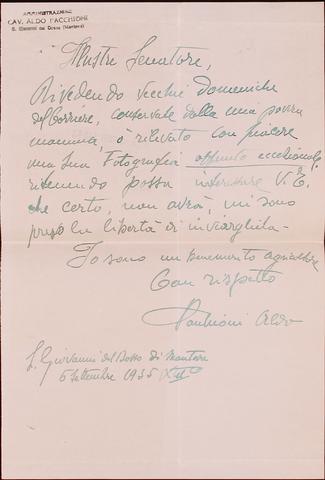 AMMINISTRAZIONE
CAV. ALDO FACCHIONI
S. Giovanni del Dosso (Mantova)
Illustre Senatore,
Rivedendo vecchie Domeniche
del Corriere, conservate dalla mia povera
mamma, ò rilevato con piacere
una Sua Fotografia
ritenendo possa interessare V. E.
che certo, non avrà, mi sono
preso la libertà di inviargliela -
Io sono un agricoltore
Con rispetto
Aldo
S. Giovanni del Dosso di Mantova
6 Settembre 1935